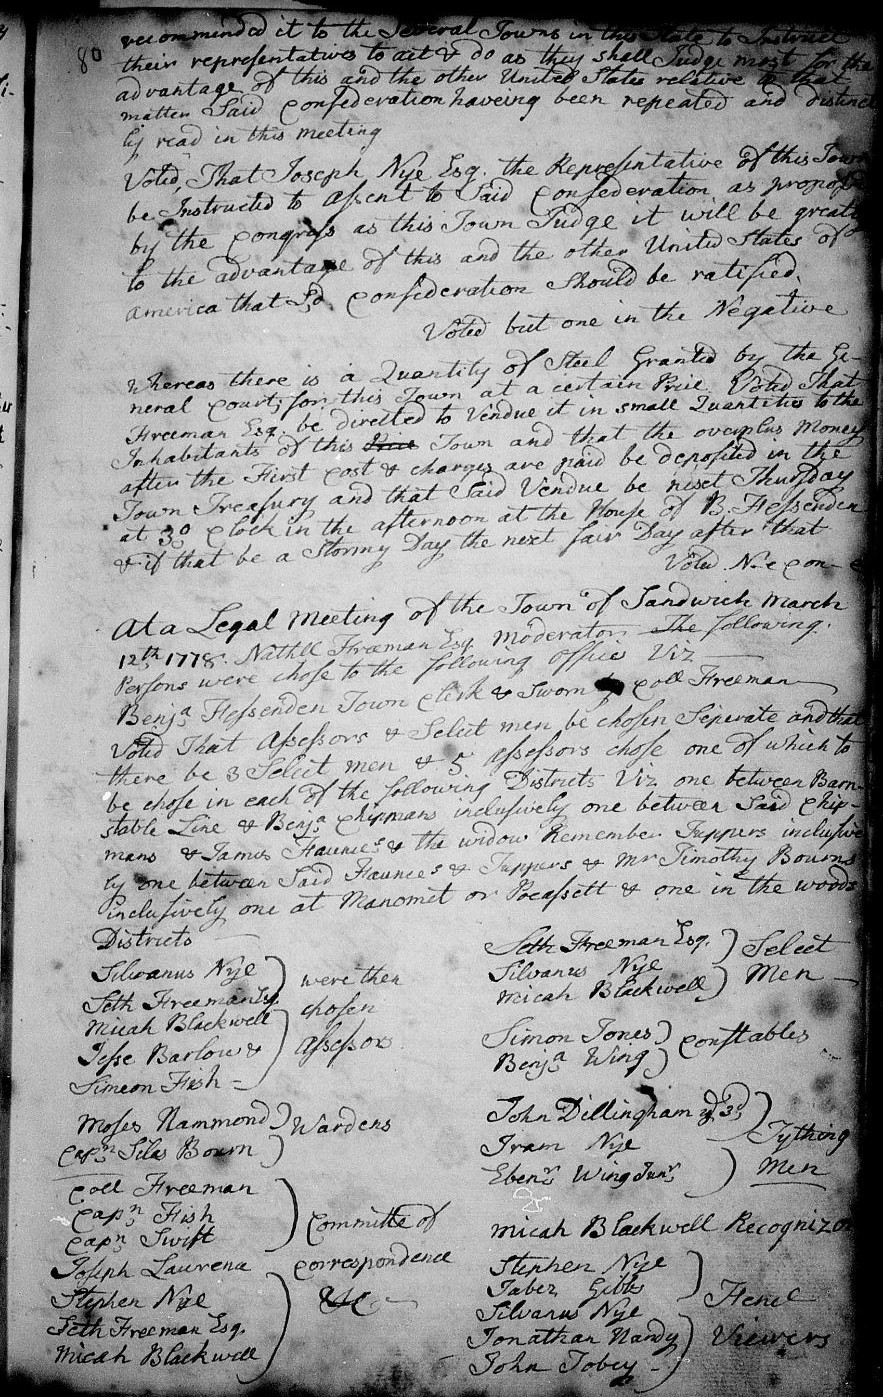 80
recommended it to the Several Towns in this State to Instruct
their representatives to act & do as they shall Judge most for the
advantage of this and the other United States relative to that
matter Said Confederation haveing been repeated and distinct
ly read in this meeting
Voted, That Joseph Nye Esq. the Representative of this Town
be Instructed to Assent to Said Confederation as propos
by the Congress as this Town Judge it will be greatly
to the advantage of this and the other United States of
America that Sd. Confederation Should be ratified.
Voted but one in the Negative
Whereas there is a Quantity of Steel Granted by the Ge-
neral Court for this Town at a certain Price Voted That
Freeman Esq. be directed to Vendue it in small Quantities to the
Inhabitants of this Town and that the overplus Money
after the First Cost & charges are paid be deposited in the
Town Treasury and that Said Vendue be next Thursday
at 3o Clock in the afternoon at the House of B. Fessenden
& if that be a Stormy Day the next fair Day after that
Voted Ne Con-
At a Legal Meeting of the Town of Sandwich March
12th 1778. Nathll Freeman Esq. Moderator. The following
Persons were chose to the following offices Viz
Benja Fessenden Town Clerk & Sworn by Coll Freeman
Voted That Assessors & Select men be chosen Seperate and that
there be 3 Select men & 5 Assessors chose one of which to
be chose in each of the following Districts Viz one between Barn-
stable Line & Benja Chipmans inclusively one between Said Chip-
mans & James Faunces & the widow Remember Tuppers inclusive
ly one between Said Faunces & Tuppers & Mr Timothy Bourns
inclusively one at Manomet or Pocassett & one in the woods
Districts
Silvanus Nye
Seth Freeman Esq.
Micah Blackwell
Jesse Barlow &
Simeon Fish
were then
chosen
Assessors
Seth Freeman Esq.
Silvanus Nye
Micah Blackwell
Select
Men
Simon Jones
Benja Wing
Constables
Moses Hammond
Capn Silas Bourn
Wardens
John Dillingham ye 3d
Iram Nye
Ebenr Wing Junr
Tything
Men
Coll Freeman
Capn Fish
Capn Swift
Joseph Laurena
Stephen Nye
Seth Freeman Esq.
Micah Blackwell
Committe of
Correspondence
&c
Micah Blackwell Recognizor
Stephen Nye
Jabez Gibbs
Silvanus Nye
Jonathan Handy
John Tobey
Fence
Viewers